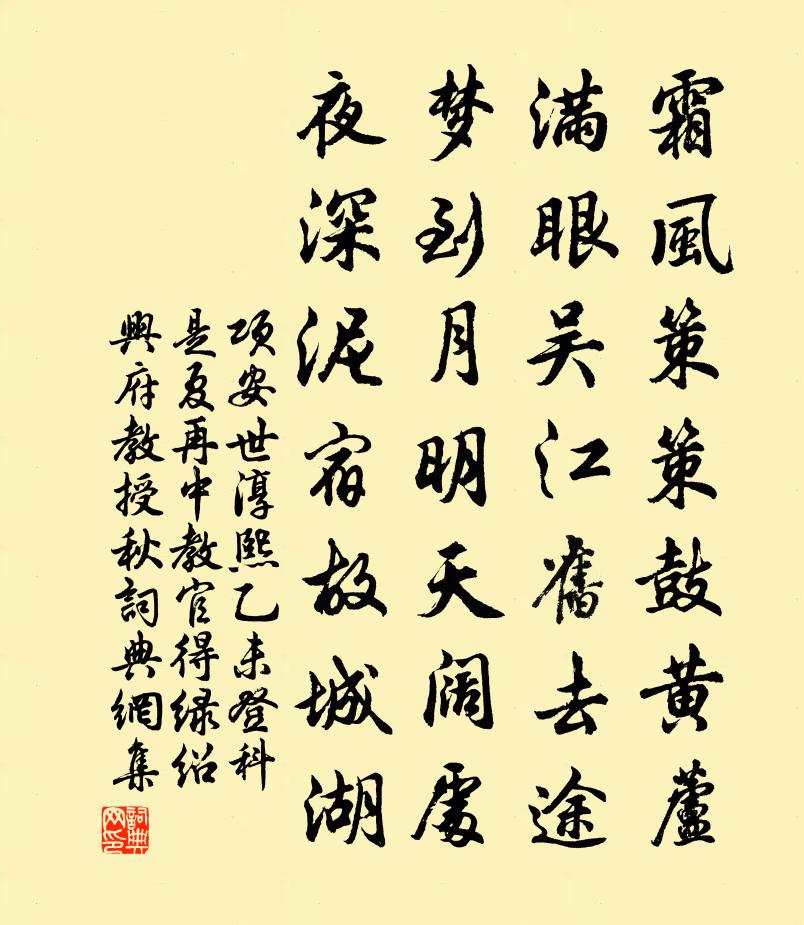 霜風策策鼓黄蘆
满眼吴江舊去途
梦到月明天阔處
夜深泥宿故城湖
项安世淳熙乙未登科
是夏再中教官得绿绍
興府教授秋詞典網集
詞典网印